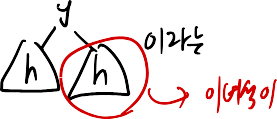 y
h h 이라는
이녀석이